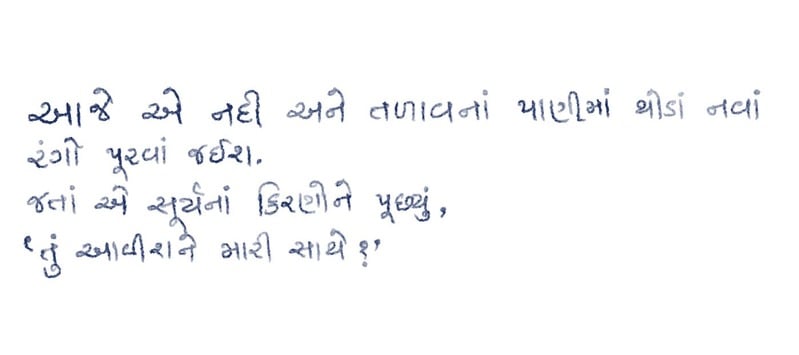 આજે એ નદી અને તળાવનાં પાણીમાં થોડાં નવાં
રંગો પૂરવાં જઈશ.
જતાં એ સૂર્યનાં કિરણોને પૂછ્યું,
'તું આવીશને મારી સાથે?'